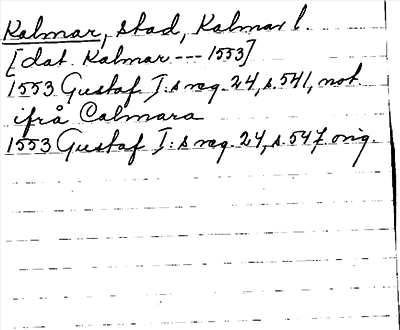 Kalmar, stad, Kalmar l.
[dat. Kalmar --- 1553]
1553 Gustaf I:s reg. 24, s. 541, not
ifrå Calmara
1553 Gustaf I:s reg. 24, s. 547 orig.